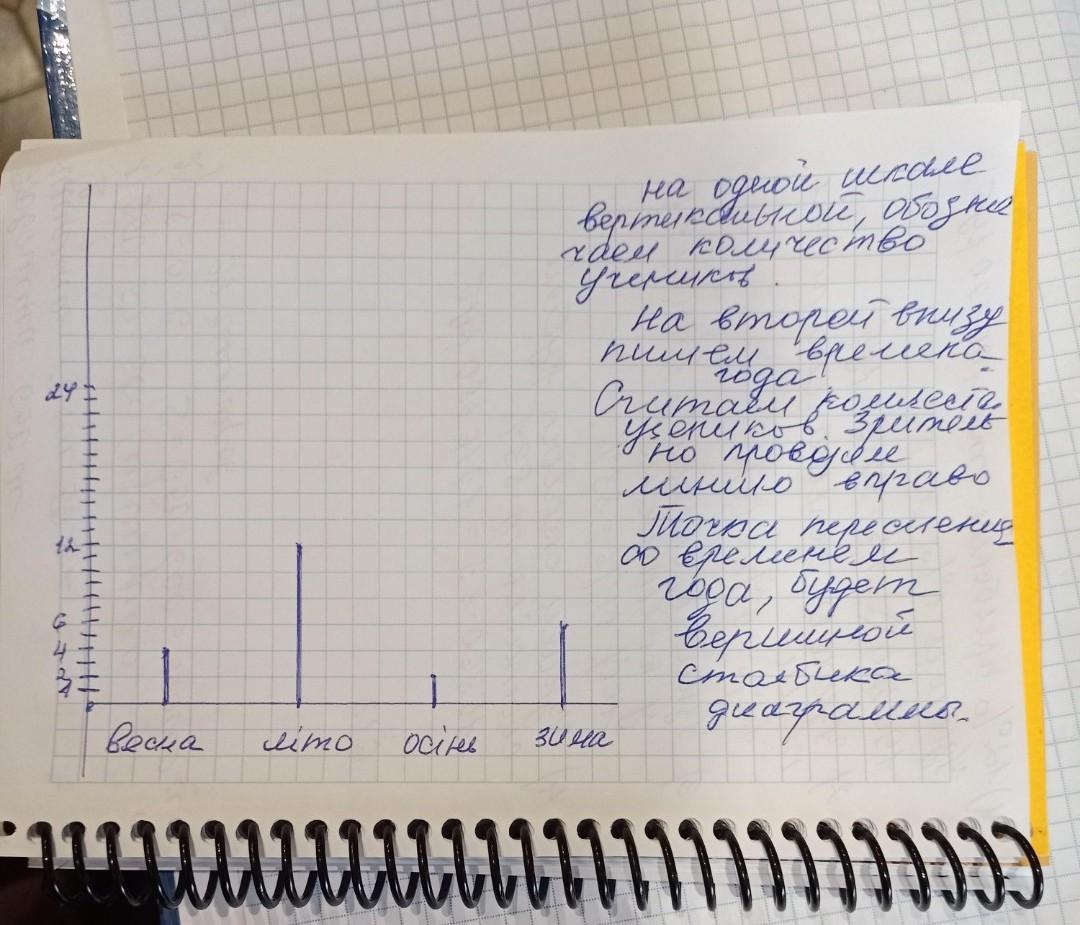 на одной шкале
вертикальной, обозна
чаем количество
учеников.
На второй внизу
пишем времена
года.
Считаем количеств
учеников. Зритель
но проводим
линию вправо
Точка пересечения
со временем
года, будет
вершиной
столбика
диаграммы.
24
12
6
4
2
1
0
весна літо осінь зима